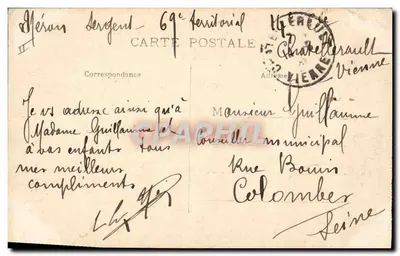 Méron Sergent 69e territorial
Chatellerault
Vienne
CARTE POSTALE
Correspondance
Adresse
VIENNE
Je vs adresse ainsi qu'à
Madame Guillaume et
à vos enfants tous
mes meilleurs
compliments
Monsieur Guillaume
Conseiller municipal
Rue Bouin
Colombes
Seine